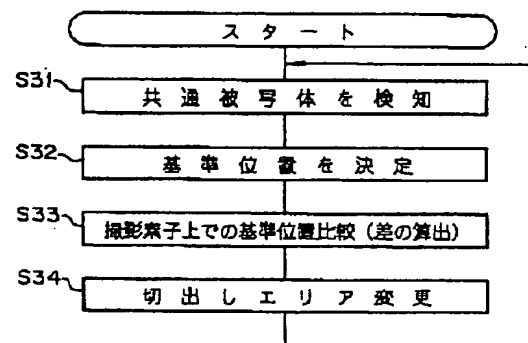 スタート
S31
共通被写体を検知
S32
基準位置を決定
S33
撮影素子上での基準位置比較(差の算出)
S34
切出しエリア変更